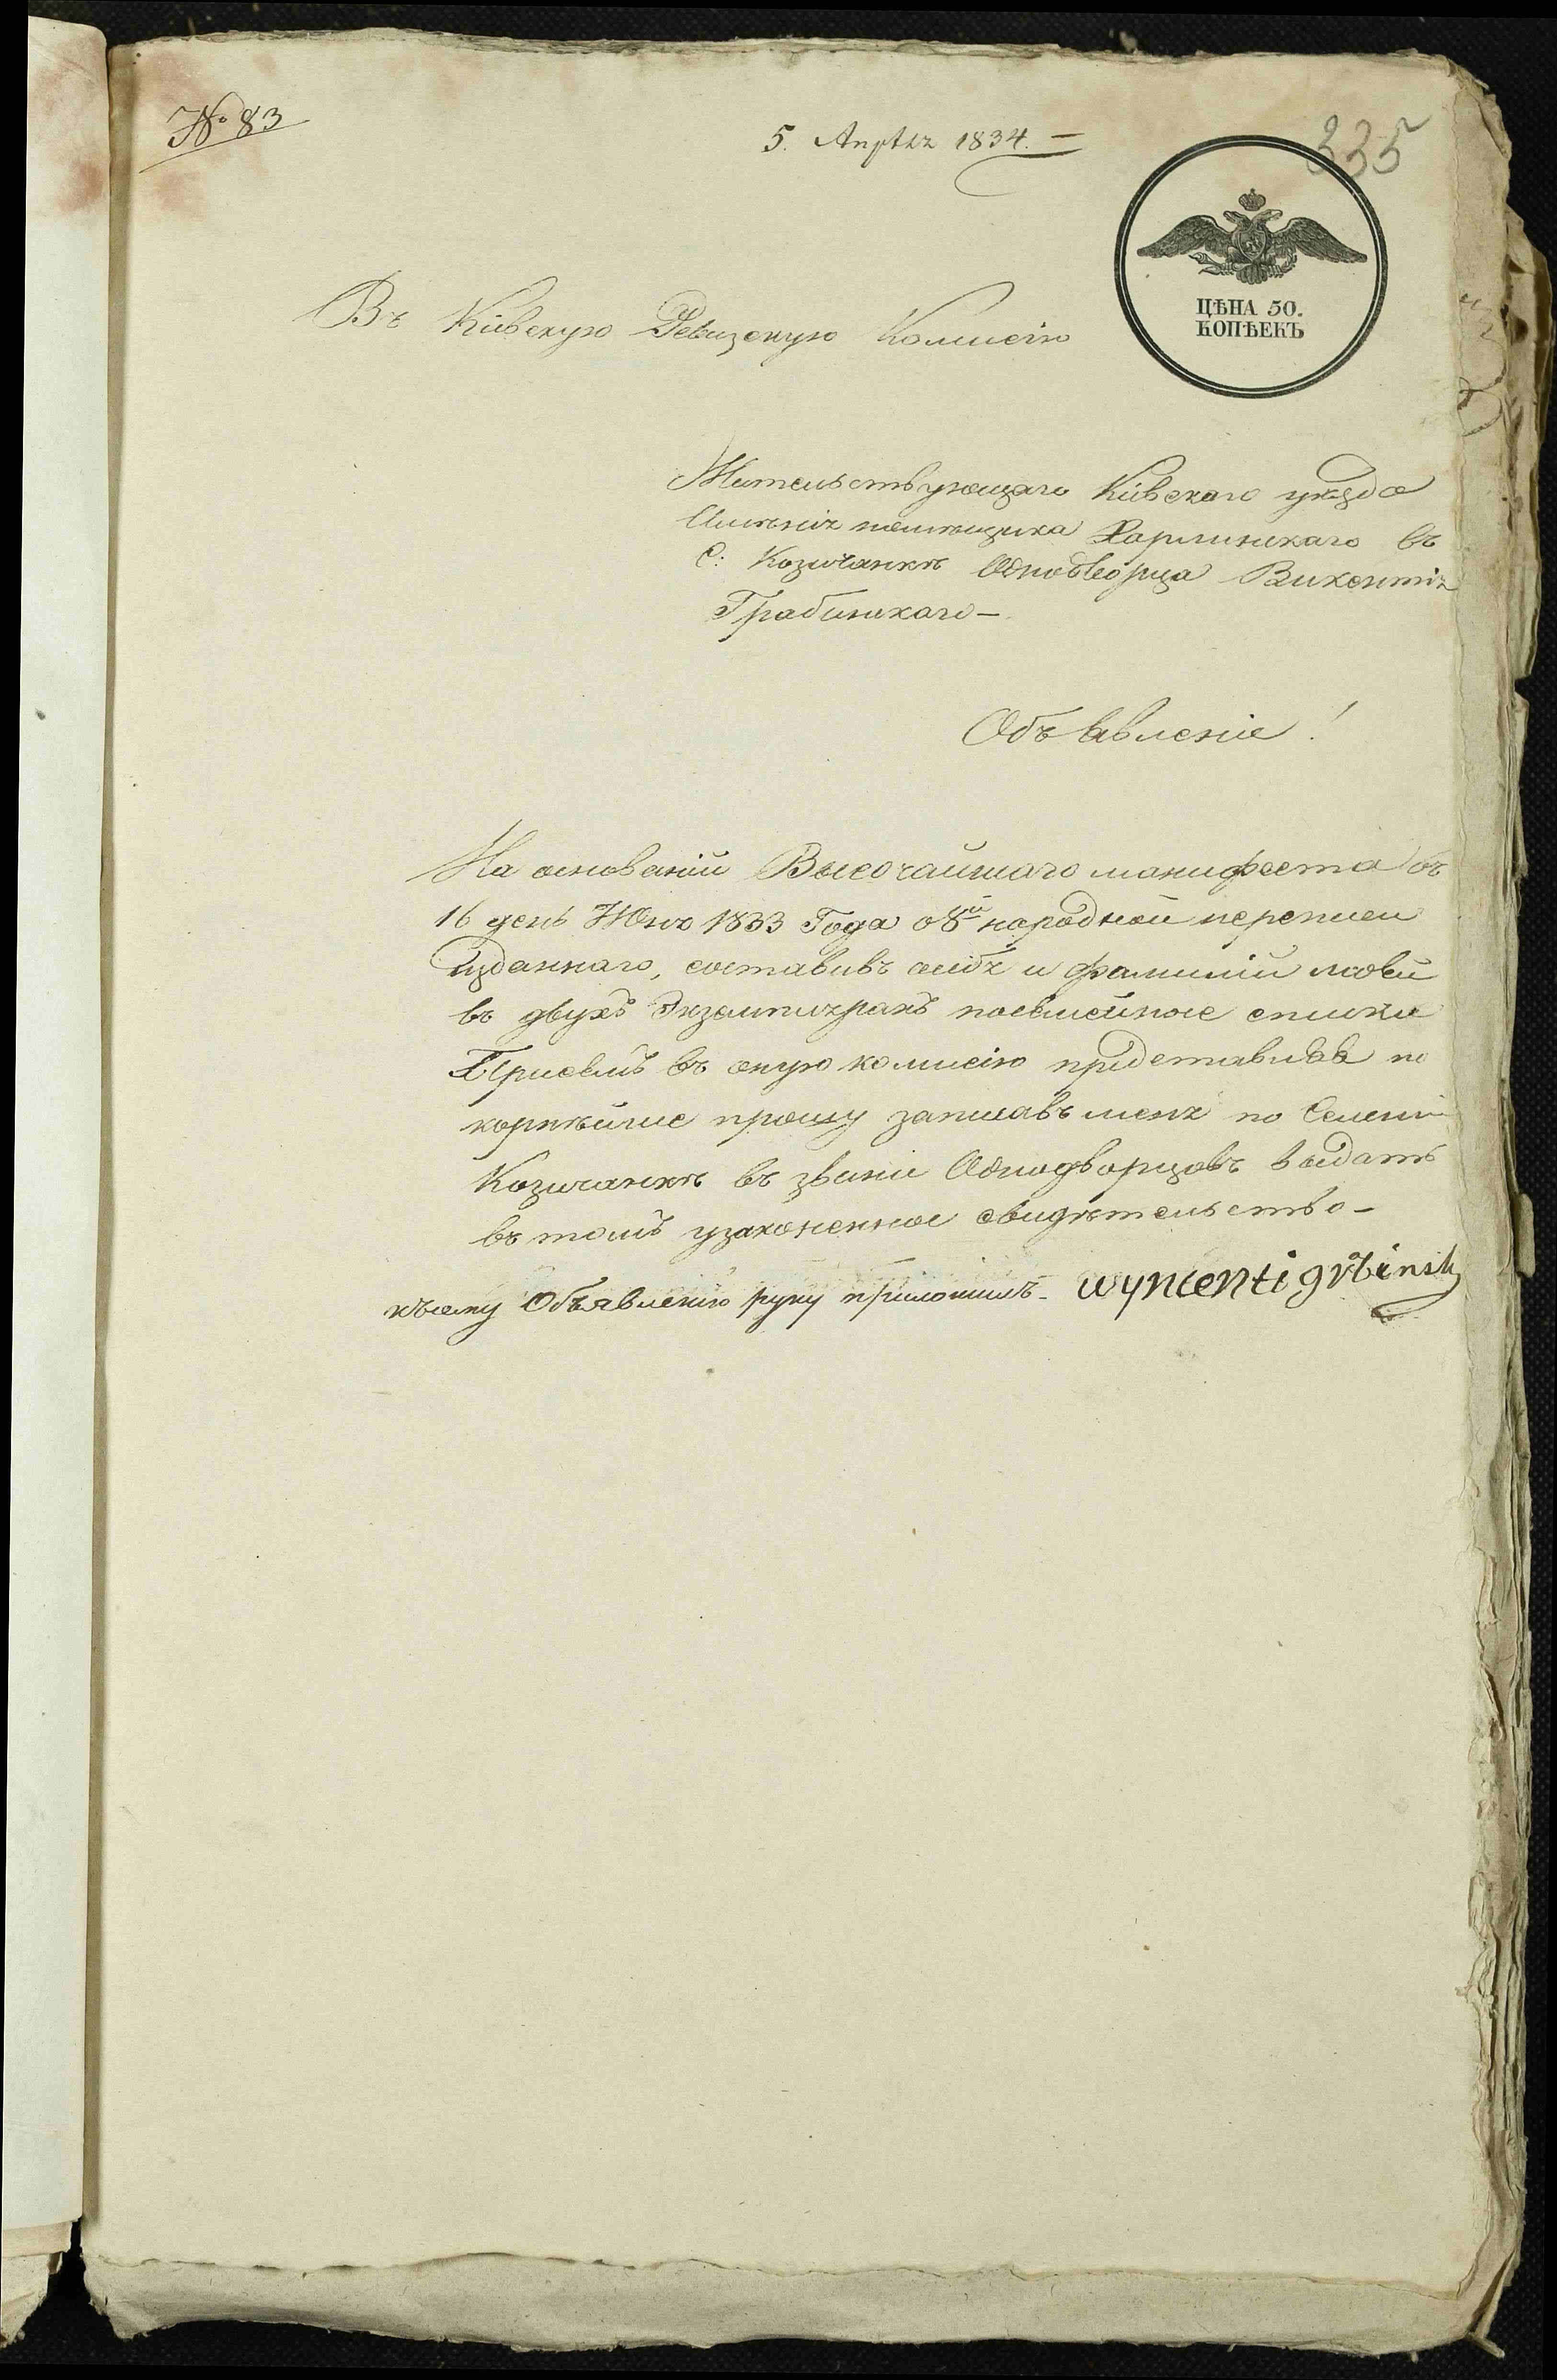 № 83
5. Апрѣля 1834. —
335
ЦѢНА 50.
КОПѢЕКЪ
Въ Кіевскую Ревизскую Комисію
Жительствующаго Кіевскаго уѣзда
Имѣнія помѣщика Харлинскаго въ
С: Козичанкѣ Однодворца Викентія
Грабинскаго —
Объявленіе!
На основаніи Высочайшаго манифеста въ
16 день Юня 1833 Года о 8й народной переписи
изданнаго, составивъ о себѣ и фамиліи моей
въ двухъ Экземплярахъ посемейные списки
Присемъ въ оную комисію представивъ по
корнѣйше прошу записавъ меня по Селенію
Козичанкѣ въ званіи Однодворцовъ выдать
въ томъ узаконенное свидѣтельство —
къ сему Объявленію руку приложилъ — wyncenti grbinsky